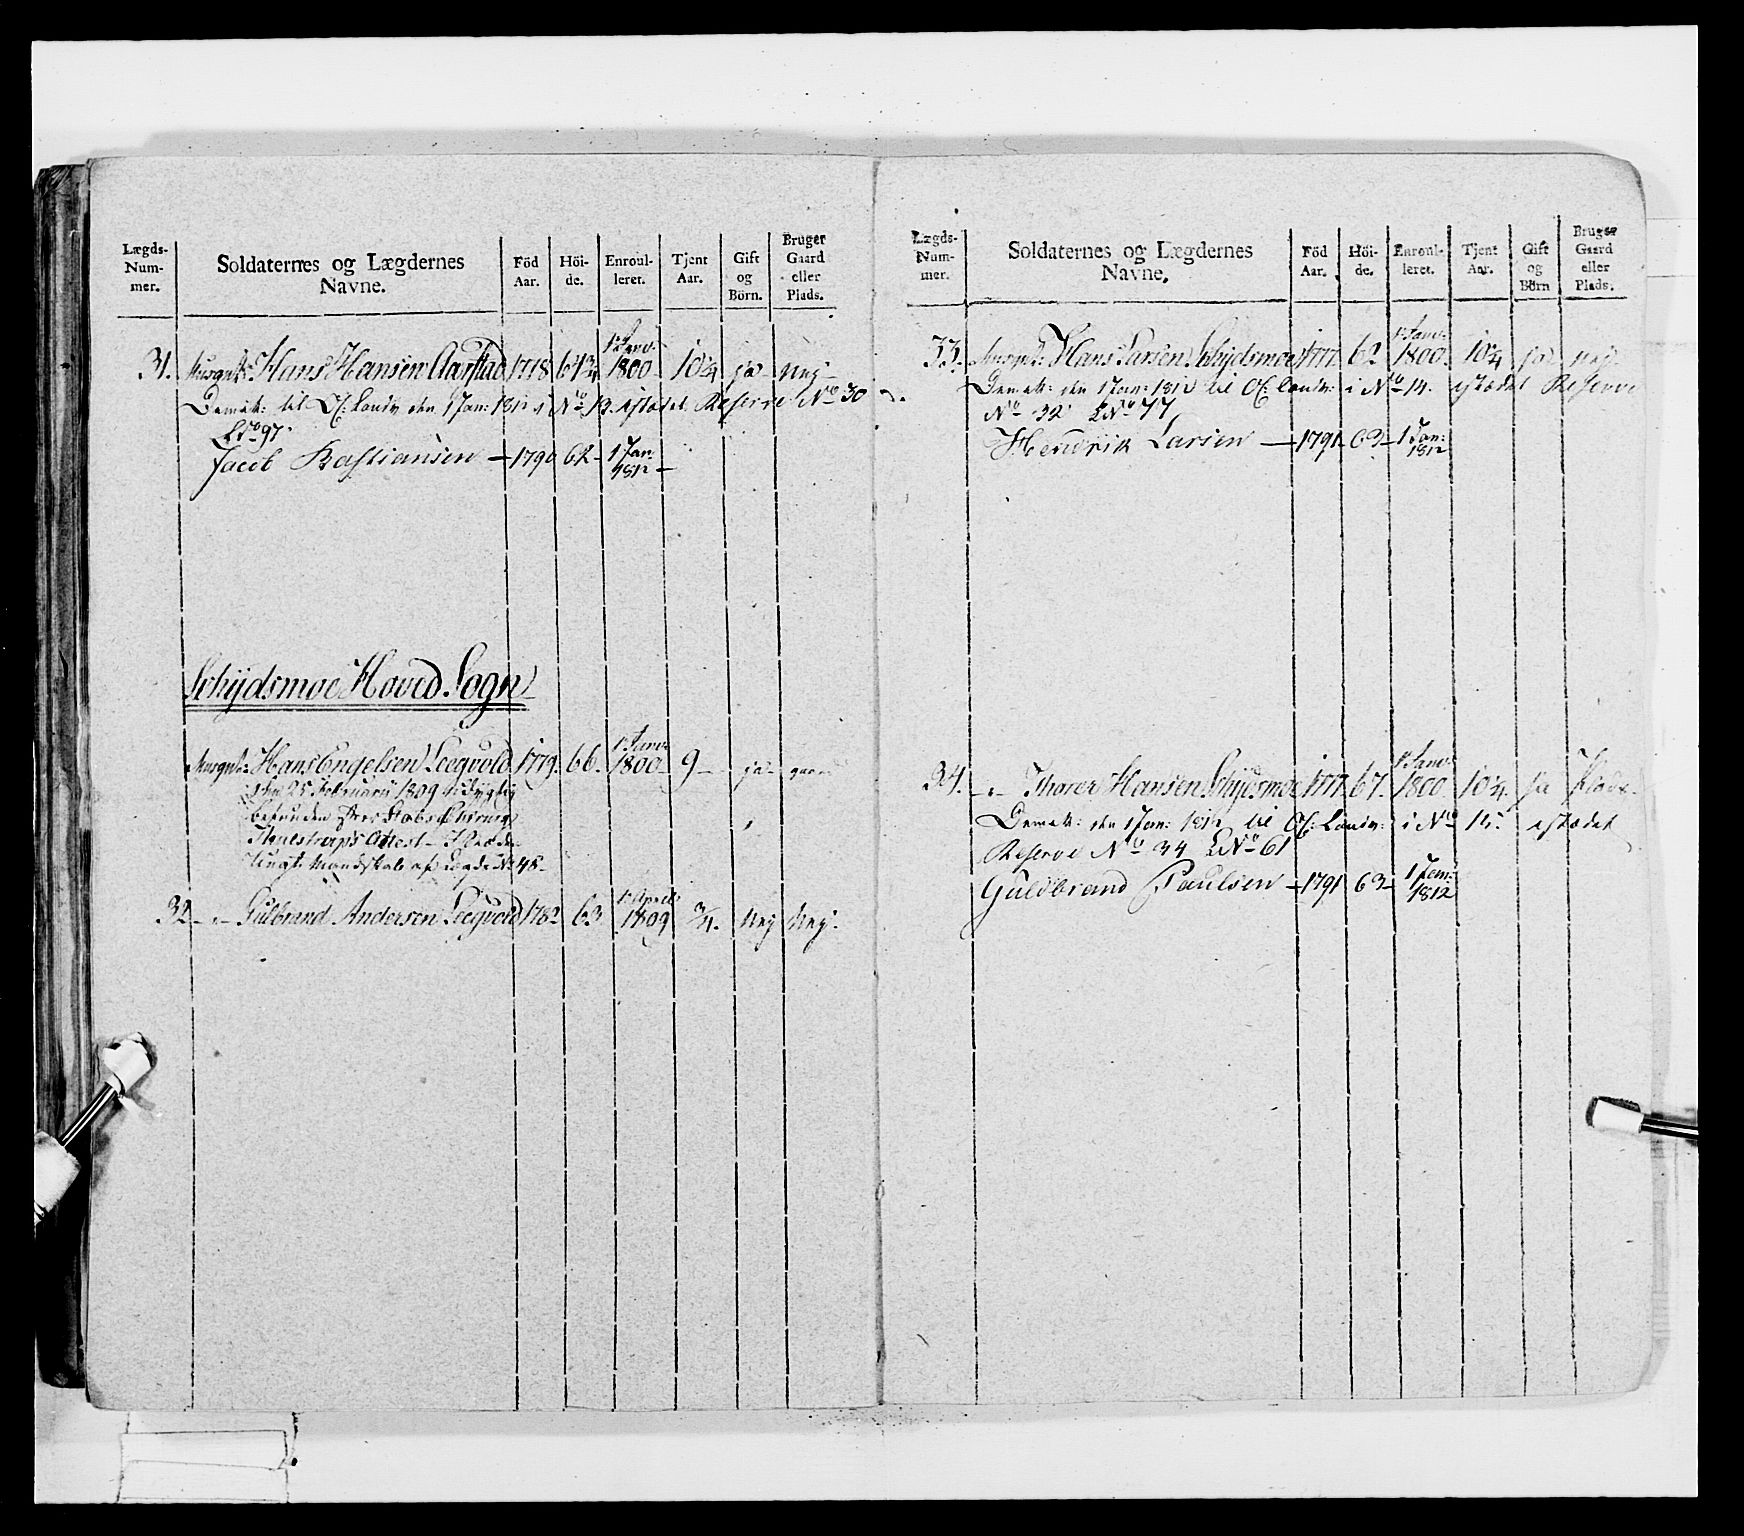 Lægds-
Num-
mer.
Soldaternes og Lægdernes
Navne.
Föd
Aar.
Höi-
de.
Enroul-
leret.
Tjent
Aar.
Gift
og
Börn.
Bruger
Gaard
eller
Plads.
31. Musqut: Hans Hansen Aarstad 1778 64¾ 1 Janv: 1800 10¼ ja Nej
til Of: Landv den 1 Jan: 1812 i No 13. istædet Reserve No 30
LNo 97.
Jacob Bastiansen — 1790 62 — 1 Jan 1812 —
Schijdsmoe Hoved Sogn
Musqut: Hans Engelsen Leegvold 1779. 66. 1 Janv 1800 9 — ja — gaard
den 25 Februarii 1809 udygtig
befunden Stabs Chirurg
Attest
Mandskab af Lægd No 48 —
32 — " — Gulbrand Andersen Leegvold 1782 63 1 April 1809 ¾. Nej Nej.
Lægds-
Num-
mer.
Soldaternes og Lægdernes
Navne.
Föd
Aar.
Höi-
de.
Enroul-
leret.
Tjent
Aar.
Gift
og
Börn
Bruger
Gaard
eller
Plads.
33. Musqut: Hans Larsen Schijdsmoe 1777. 62 1 Janv: 1800. 10¼ ja Nej
den 1 Jan: 1812 til Of: Landv: i No 14. istædet Reserve
No 32 LNo 77
Hendrik Larsen — 1791 — 63 — 1 Jan: 1812
34. — " — Thorer Hansen Schijdsmoe 1777. 67. 1 Janv: 1800. 10¼. ja Plads —
den 1 Jan: 1812 til Of: Landv: i No 15. istædet
Reserve No 34 LNo 61
Guldbrand Paulsen — 1791 63 — 1 Jan: 1812